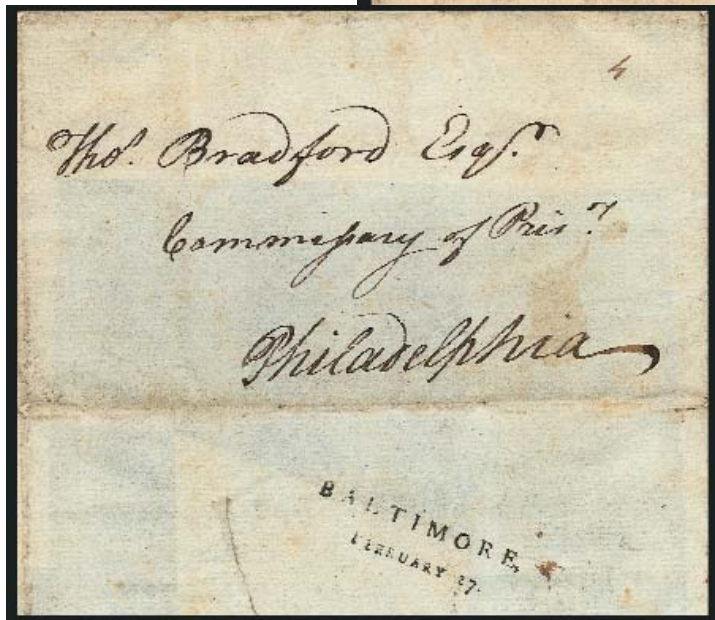 4
Thos. Bradford Esqr.
Commissary of Prisrs.
Philadelphia
BALTIMORE,
FEBRUARY 27.